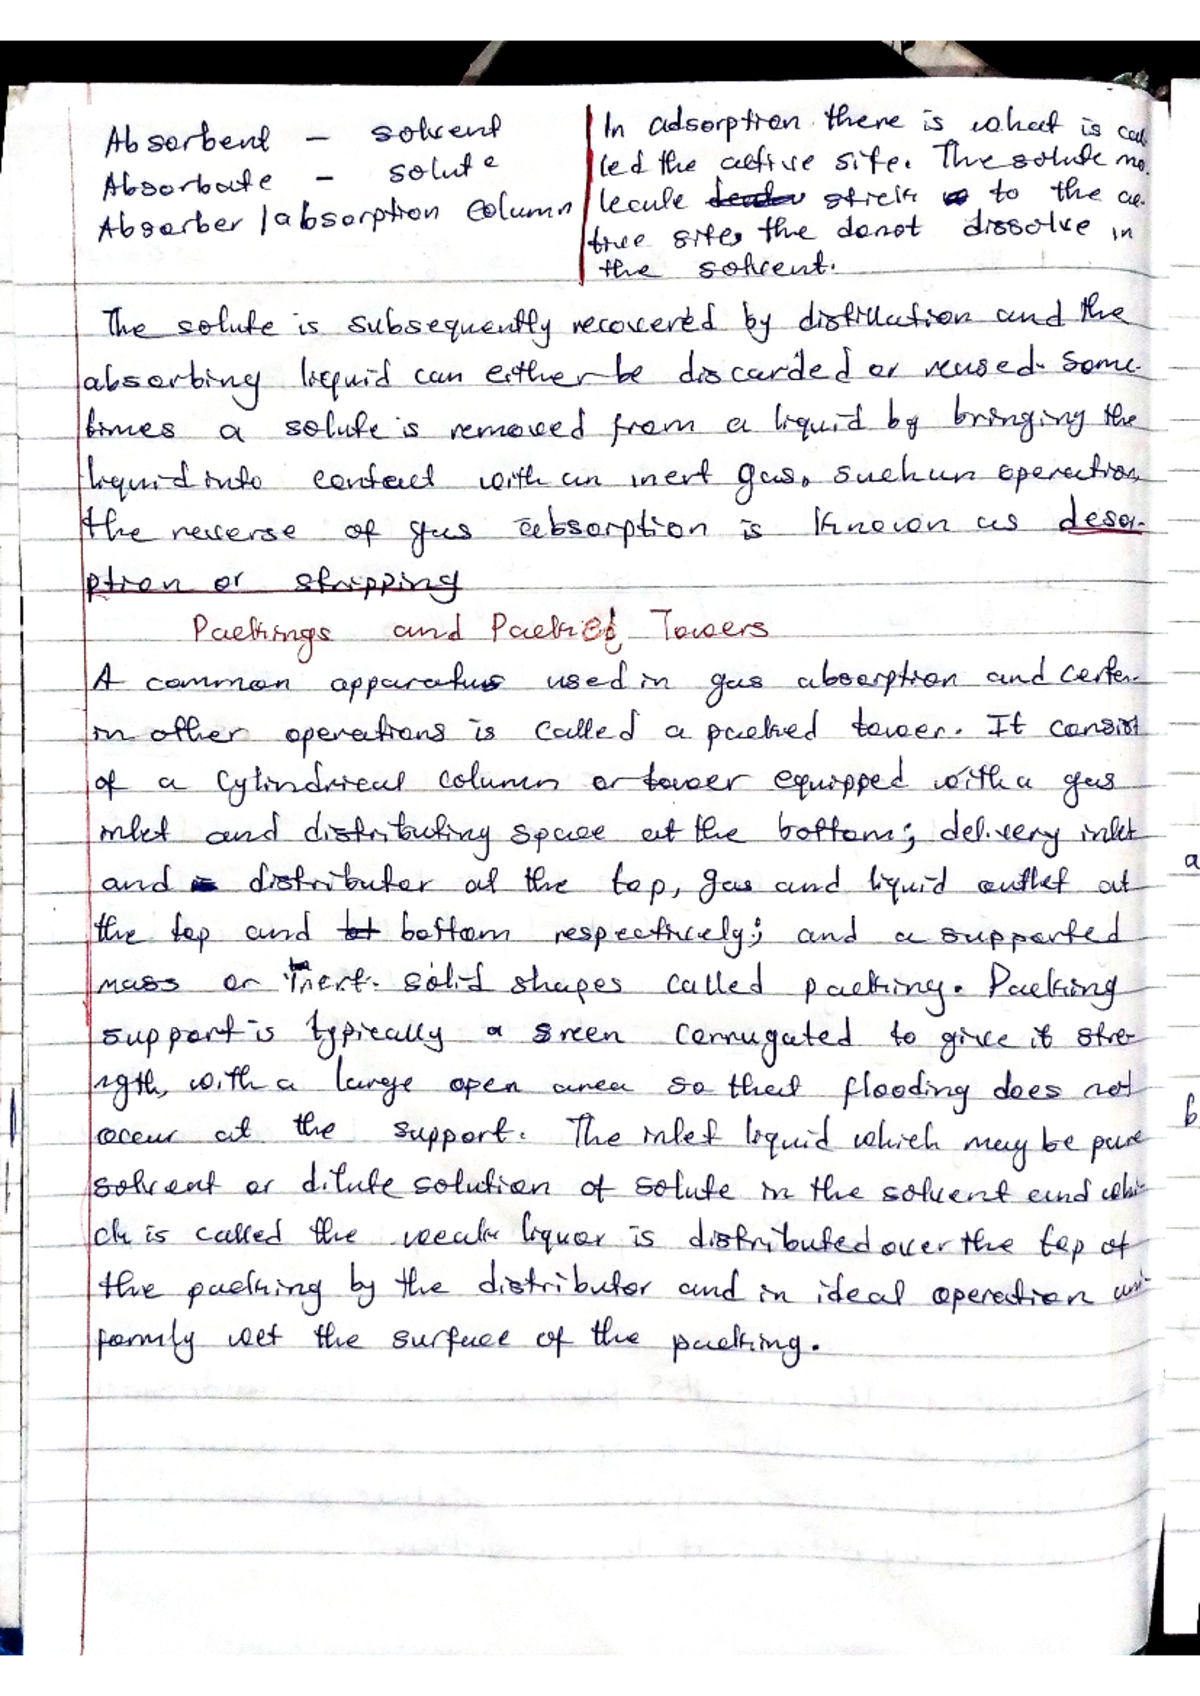 Absorbent - solvent
Absorbate - solute
Absorber / absorption column
In adsorption there is what is cal
led the active site. The solute mo.
lecule stick to the ac-
tive site, the donot dissolve in
the solvent.
The solute is subsequently recovered by distillation and the
absorbing liquid can either be discarded or reused. Some-
times a solute is removed from a liquid by bringing the
liquid into contact with an inert gas, such an operation,
the reverse of gas absorption is known as desor-
ption or stripping
Packings and Packed Towers
A common apparatus used in gas absorption and certa-
in other operations is called a packed tower. It consist
of a cylindrical column or tower equipped with a gas
inlet and distributing space at the bottom; delivery inlet
and distributor at the top, gas and liquid outlet at
the top and bottom respectively; and a supported
mass or inert. solid shapes called packing. Packing
support is typically a sreen corrugated to give it stre-
ngth, with a large open area so that flooding does not
occur at the support. The inlet liquid which may be pure
solvent or dilute solution of solute in the solvent and whi-
ch is called the weak liquor is distributed over the top of
the packing by the distributor and in ideal operation uni-
formly wet the surface of the packing.
a
b